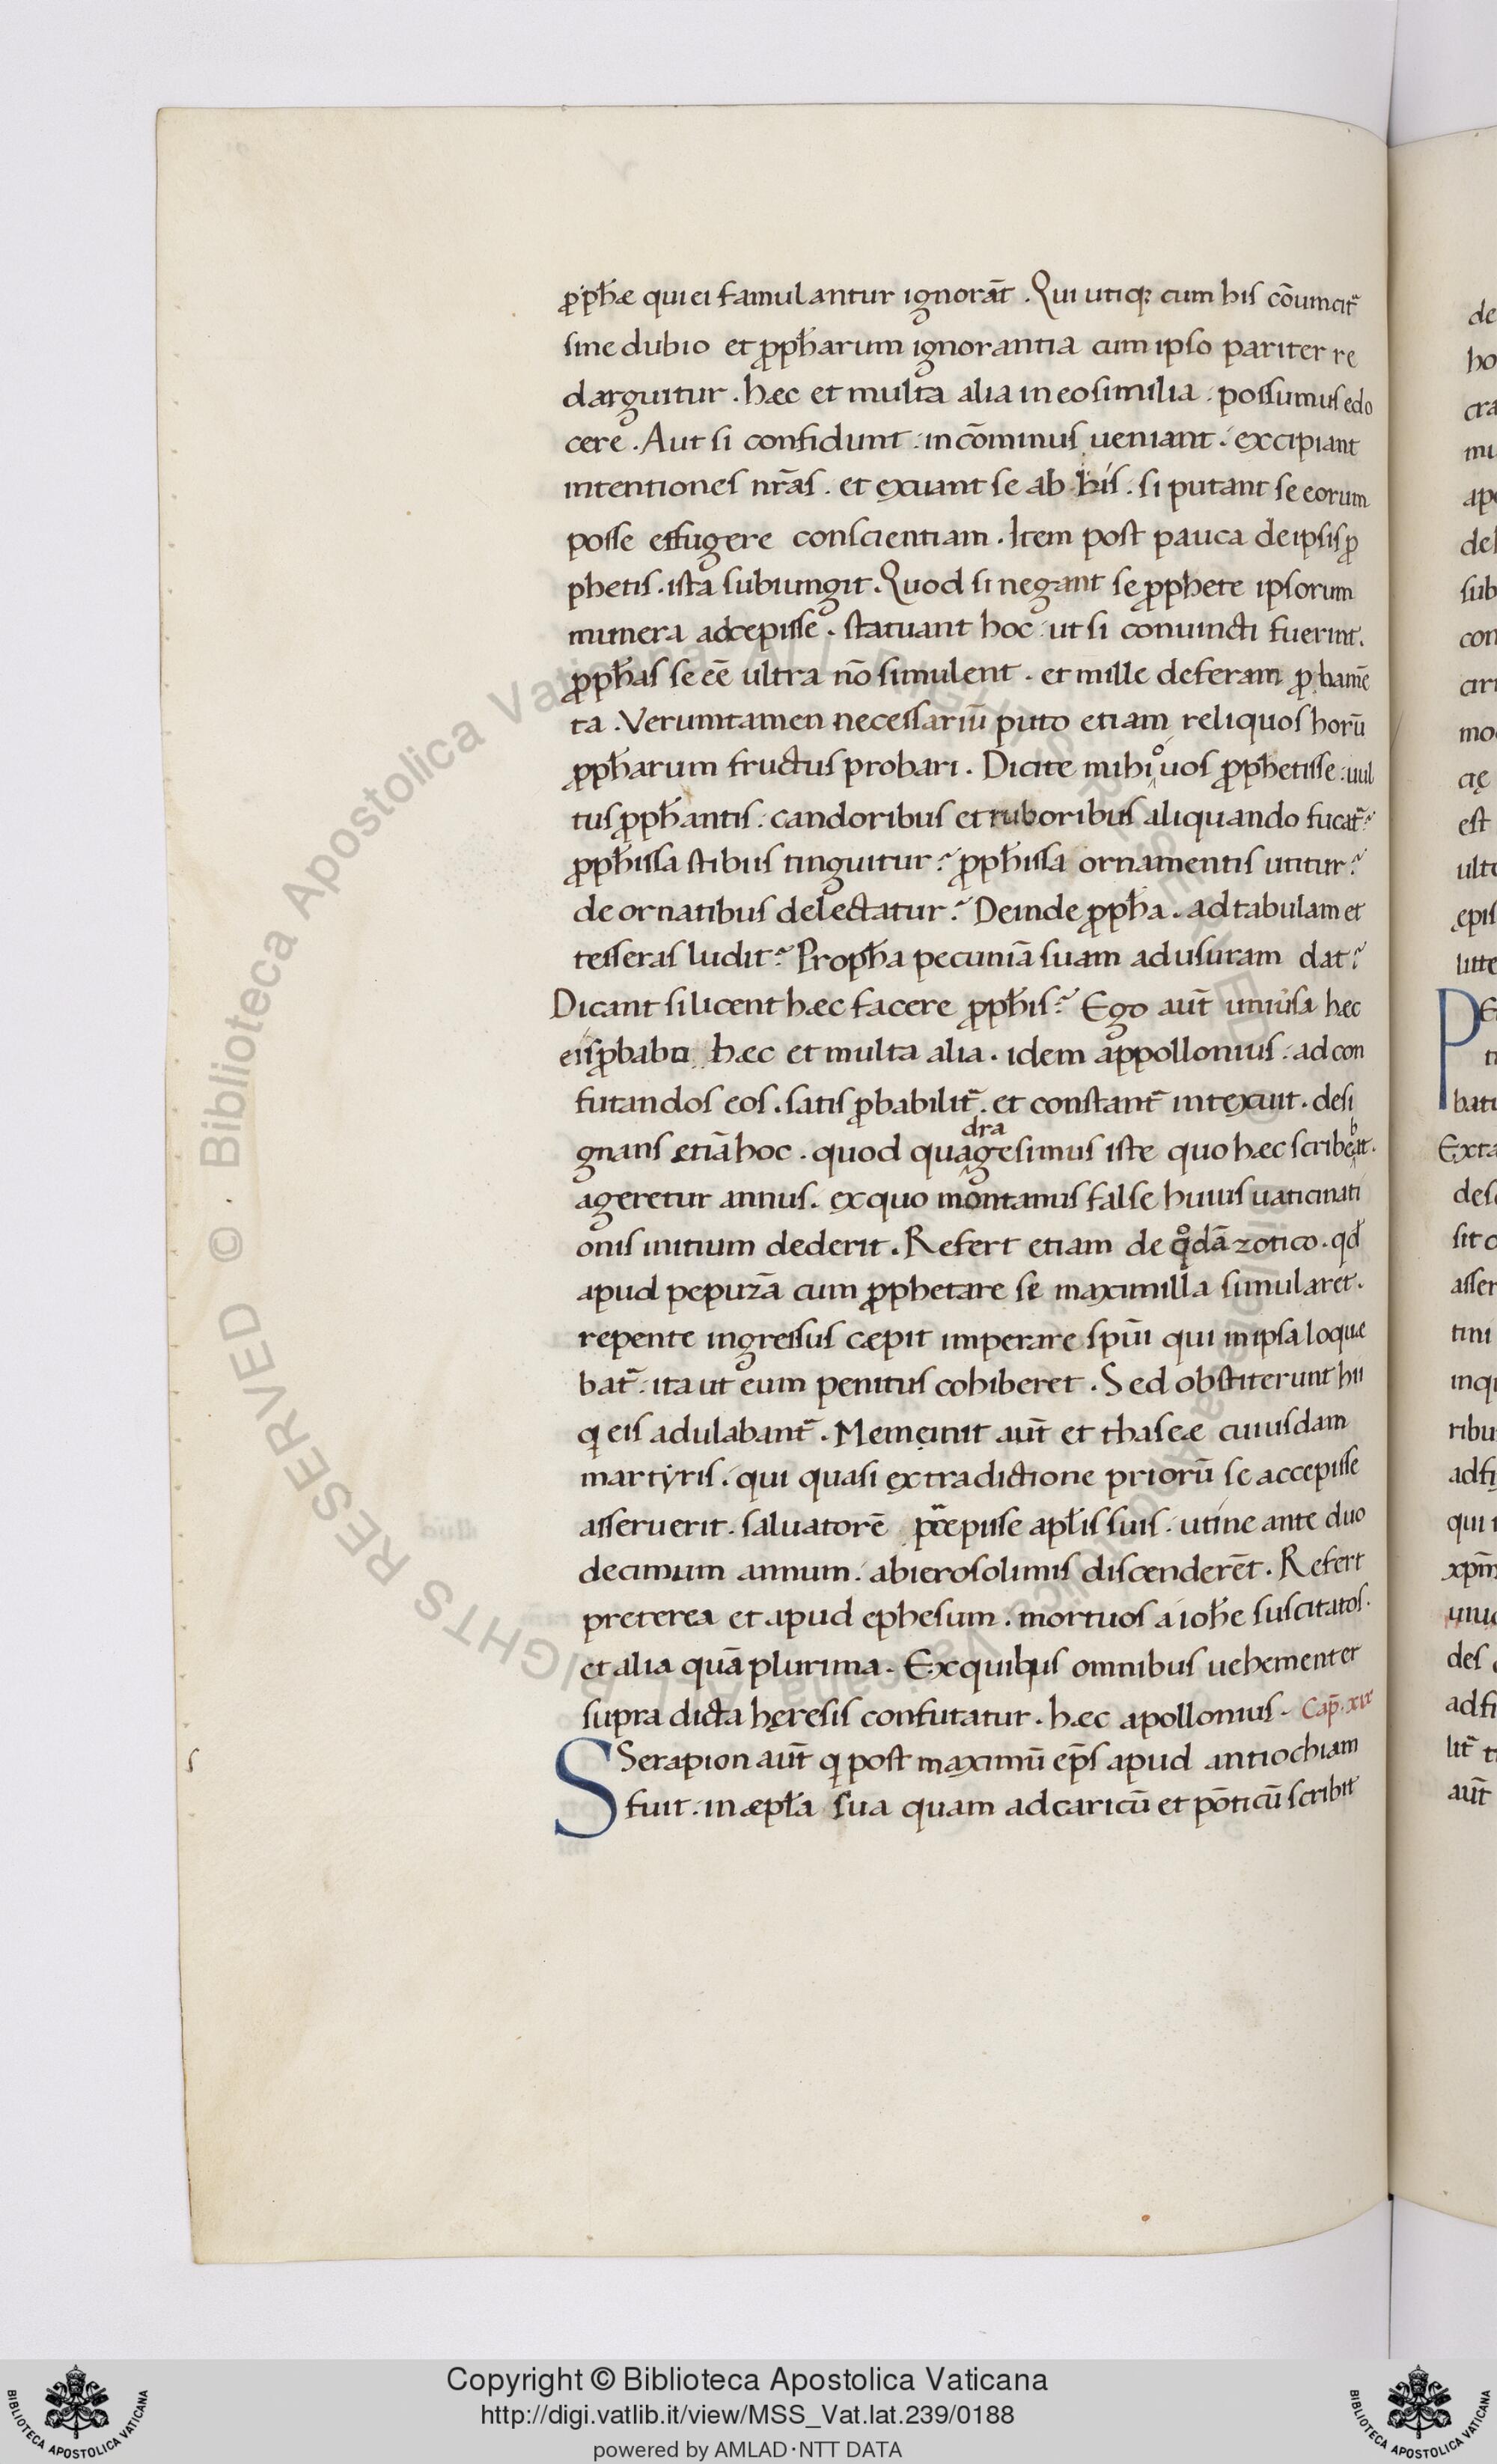 ꝓph̄æ qui ei famulantur ignorãt . Qui utiqꝫ cum his cõuincit᷑
sine dubio et ꝓph̄arum ignorantia cum ipso pariter re
darguitur . hæc et multa alia in eo similia : possumus edo
cere . Aut si confidunt : in cõminus ueniant : excipiant
intentiones nr̃as . et exuant se ab his . si putant se eorum
posse effugere conscientiam . Item post pauca de ipsis ꝓ
phetis . ista subiungit . Quod si negant se ꝓphete ipsorum
munera adcepisse . statuant hoc : ut si conuincti fuerint .
ꝓph̄as se eẽ ultra nõ simulent . et mille deferam ꝓbamẽ
ta . Verumtamen necessariũ puto etiam reliquos horũ
ꝓph̄arum fructus probari . Dicite mihi o uos ꝓphetisse : uul
tus ꝓph̄antis : candoribus et ruboribus aliquando fucat᷑ ?
ꝓph̄issa stibiis tinguitur ? ꝓph̄issa ornamentis utitur ?
de ornatibus delectatur ? Deinde ꝓph̄a . ad tabulam et
tesseras ludit ? Proph̄a pecuniã suam ad usuram dat ?
Dicant si licent hæc facere ꝓph̄is ? Ego aut̃ uniũsa hæc
eis ꝓbabo hæc et multa alia . idem appollonius : ad con
futandos eos . satis ꝓbabilit᷑ . et constant᷑ intexuit . desi
gnans etiã hoc . quod quadragesimus iste quo hæc scribebat .
ageretur annus . ex quo montanus false huius uaticinati
onis initium dederit . Refert etiam de qͦdã zotico . qd̃
apud pepuzã cum ꝓphetare se maximilla simularet .
repente ingressus cæpit imperare spũi qui in ipsa loquæ
bat᷑ : ita ut eum penitus cohiberet . Sed obstiterunt hii
q eis adulabant᷑ . Meminit aut̃ et thaseæ cuiusdam
martyris . qui quasi ex tradictione priorũ se accepisse
asseruerit . saluatorẽ p̃cepisse apl̃is suis . ut ne ante duo
decimum annum : ab ierosolimis discenderẽt . Refert
preterea et apud ephesum . mortuos a ioh̃e suscitatos .
et alia quã plurima . Ex quibus omnibus uehementer
supra dicta hęresis confutatur . hæc apollonius . Cap̃. xix
S Serapion aut̃ q post maximũ ep̃s apud antiochiam
s
fuit . in æpl̃a sua quam ad caricũ et põticũ scribit
Copyright © Biblioteca Apostolica Vaticana
http://digi.vatlib.it/view/MSS_Vat.lat.239/0188
powered by AMLAD·NTT DATA